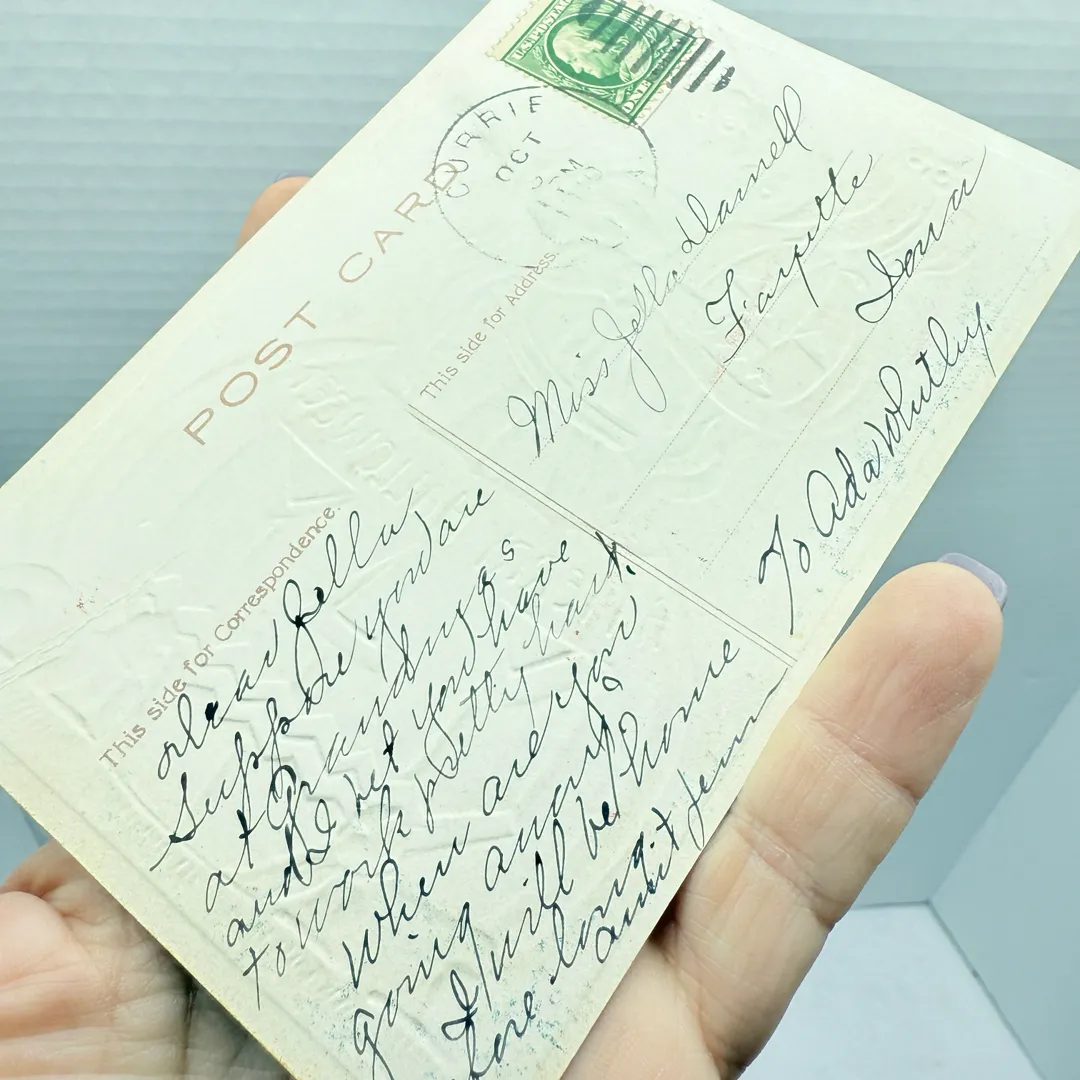 U.S. POSTAGE
ONE
CURRIE
OCT
POST CARD
This side for Address.
Miss Zella Darnell
Farpette
Iowa
To Ada Whitley.
This side for Correspondence.
Dear Zella
Suppose you are
at Grandmas
and I bet you have
to work pretty hard.
When are you
going away
I will be home
fore long.
aunt Jenn